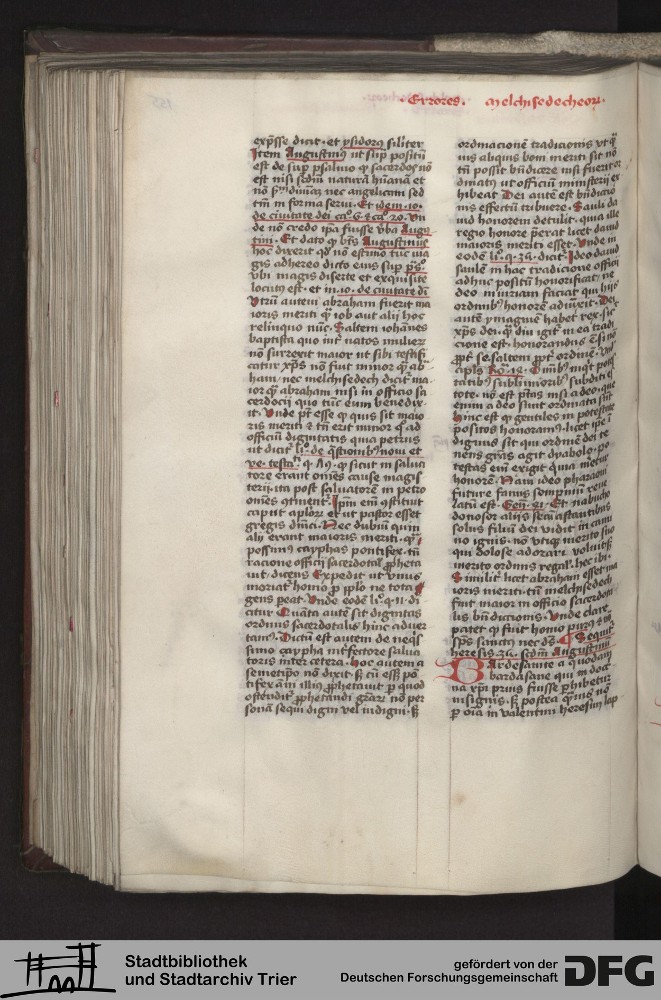 Errores. melchisedecheorū.
exp̄sse dicit. et ysidorus siliter
Item Augustinus ut sup̄ positū
est de sup̄ psalmo q̄ sacerdos nō
est nisi scd̄m naturā hūanā et
nō sm̄ diuinā nec angelicam sed
tm̄ in forma serui. Et idem .10.
de ciuitate dei ca. 6. et ca. 20. vn̄
de nō credo ip̄a fuisse v̄ba Augu
tini. Et dato q̄ bt̄s Augustinus
hoc dixerit qd̄ nō estimo tūc ma
gis adhereo dicto eius sup̄ ps̄o.
vbi magis diserte et exquisite
locutus est. et in .10. de ciuitate di
Utrū autem abraham fuerit ma
ioris meriti q̄ iob aut alij hoc
relinquo nūc. Saltem iohānes
baptista quo int̄ natos mulierū
nō surrexit maior ut sibi testifi
catur xp̄s nō fuit minor q̄ ab̄
ham. nec melchisedech dicit̄ ma
ior q̄ abraham nisi in officio sa
cerdocij quo tūc eum benedix
it. Unde pt̄ esse q̄ quis sit maio
ris meriti et tn̄ erit minor q̄ ad
officiū dignitatis quia petrus
ut dicit̄ li. de q̄stionibus noui et
ve. testa. q. 19. q̄ sicut in salua
tore erant om̄es cause magis
terij. ita post saluatorē in petro
om̄es 9tinent̄. Ip̄m em̄ 9stituit
caput ap̄lorū et ut pastor esset
gregis dn̄ici. Nec dubiū quin
alij erant maioris meriti. q̄
possim9 cayphas pontifex. tn̄
racione officij sacerdotal̄ ꝓpheta
uit. dicens Expedit ut vnus
moriat̄ homo ꝓ ppl̄o ne tota
gens ꝑeat. Unde eodē li. q. 11. di
citur Quāta autē sit dignitas
ordinis sacerdotalis hinc aduer
tam9. Dictū est autem de neq̄s
simo caypha int̄fectore salua
toris inter cetera. Hoc autem a
semetipō nō dixit. s̄ cū ess̄ pō
tifex āni illius ꝓphetauit ꝑ quod
ostendit̄ ꝓphetandi grā̄ nō per
sonā sequi digni vel indigni. s̄
ordinacionē tradicionis ut q̄
uis aliquis boni meriti sit nō
tn̄ possit bn̄dicere nisi fuerit or
dinatus ut officiū ministerij ex
hibeat Dei autē est bn̄dicio
nis effectū tribuere. Sauli da
uid honorem detulit. quia ille
regio honore p̄erat licet dauid
maioris meriti esset. Unde in
eodē li. q. 35. dicit. Ideo dauid
saulē in hac tradicione officij
adhuc positū honorificat. ne
deo iniuriam faciat qui hijs
ordinibus honorē adiuxit. Dei
autē ymaginē habet rex. sic
xp̄s dei. q̄ diu igit̄ in ea tradi
cione est. honorandus ē si nō
ꝓpt̄ se. saltem ꝓpt̄ ordinē. vn̄
ap̄ls Ro. 13. Om̄ibus inq̄t potes
tatibus sublimioribus subditi es
tote. nō est p̄tas nisi a deo. que
enim a deo sunt ordinata sūt.
hinc est q̄ gentiles in potestate
positos honoram9. licet ip̄e ī
dignus sit qui ordinē dei te
nens grās agit dyabolo. po
testas em̄ exigit q̄uia meret̄
honorē. Nam ideo pharaoni
future famis sompniū reue
latū est. Gen. 41. Et nabucho
donosor alijs secū astantibus
solus filiū dei vidit in cami
no ignis. nō vtiq̄ merito suo
qui dolose adorari voluit. s̄
merito ordinis regal̄. hec ibi.
Similit̄ licet abraham esset ma
ioris meriti: tn̄ melchisedech
fuit maior in officio sacerdota
lis bn̄dictionis. Unde clare
patet q̄ fuit homo purus et nō
sp̄s sanctus nec d̄s. Sequit̄
heresis .35. scd̄m Augustinū
Bardesaniste a quodam
bardasane qui in doct̄
na xp̄i prius fuisse ꝑhibetur
insignis. s̄ postea q̄uis nō
ꝑ oīa in valentini heresim lap
Stadtbibliothek
und Stadtarchiv Trier
gefördert von der
Deutschen Forschungsgemeinschaft
DFG